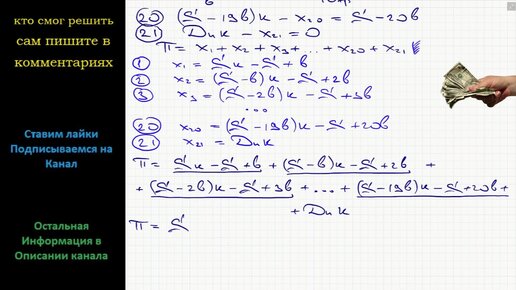 кто смог решить
сам пишите в
комментариях
Ставим лайки
Подписываемся на
Канал
Остальная
Информация в
Описании канала
20 (S - 19в)к - x20 = S - 20в
21 Dпк - x21 = 0
П = x1 + x2 + x3 + ... + x20 + x21
1 x1 = Sк - S + в
2 x2 = (S - в)к - S + 2в
3 x3 = (S - 2в)к - S + 3в
...
20 x20 = (S - 19в)к - S + 20в
21 x21 = Dпк
П = Sк - S + в + (S - в)к - S + 2в +
+ (S - 2в)к - S + 3в + ... + (S - 19в)к - S + 20в +
+ Dпк
П = S